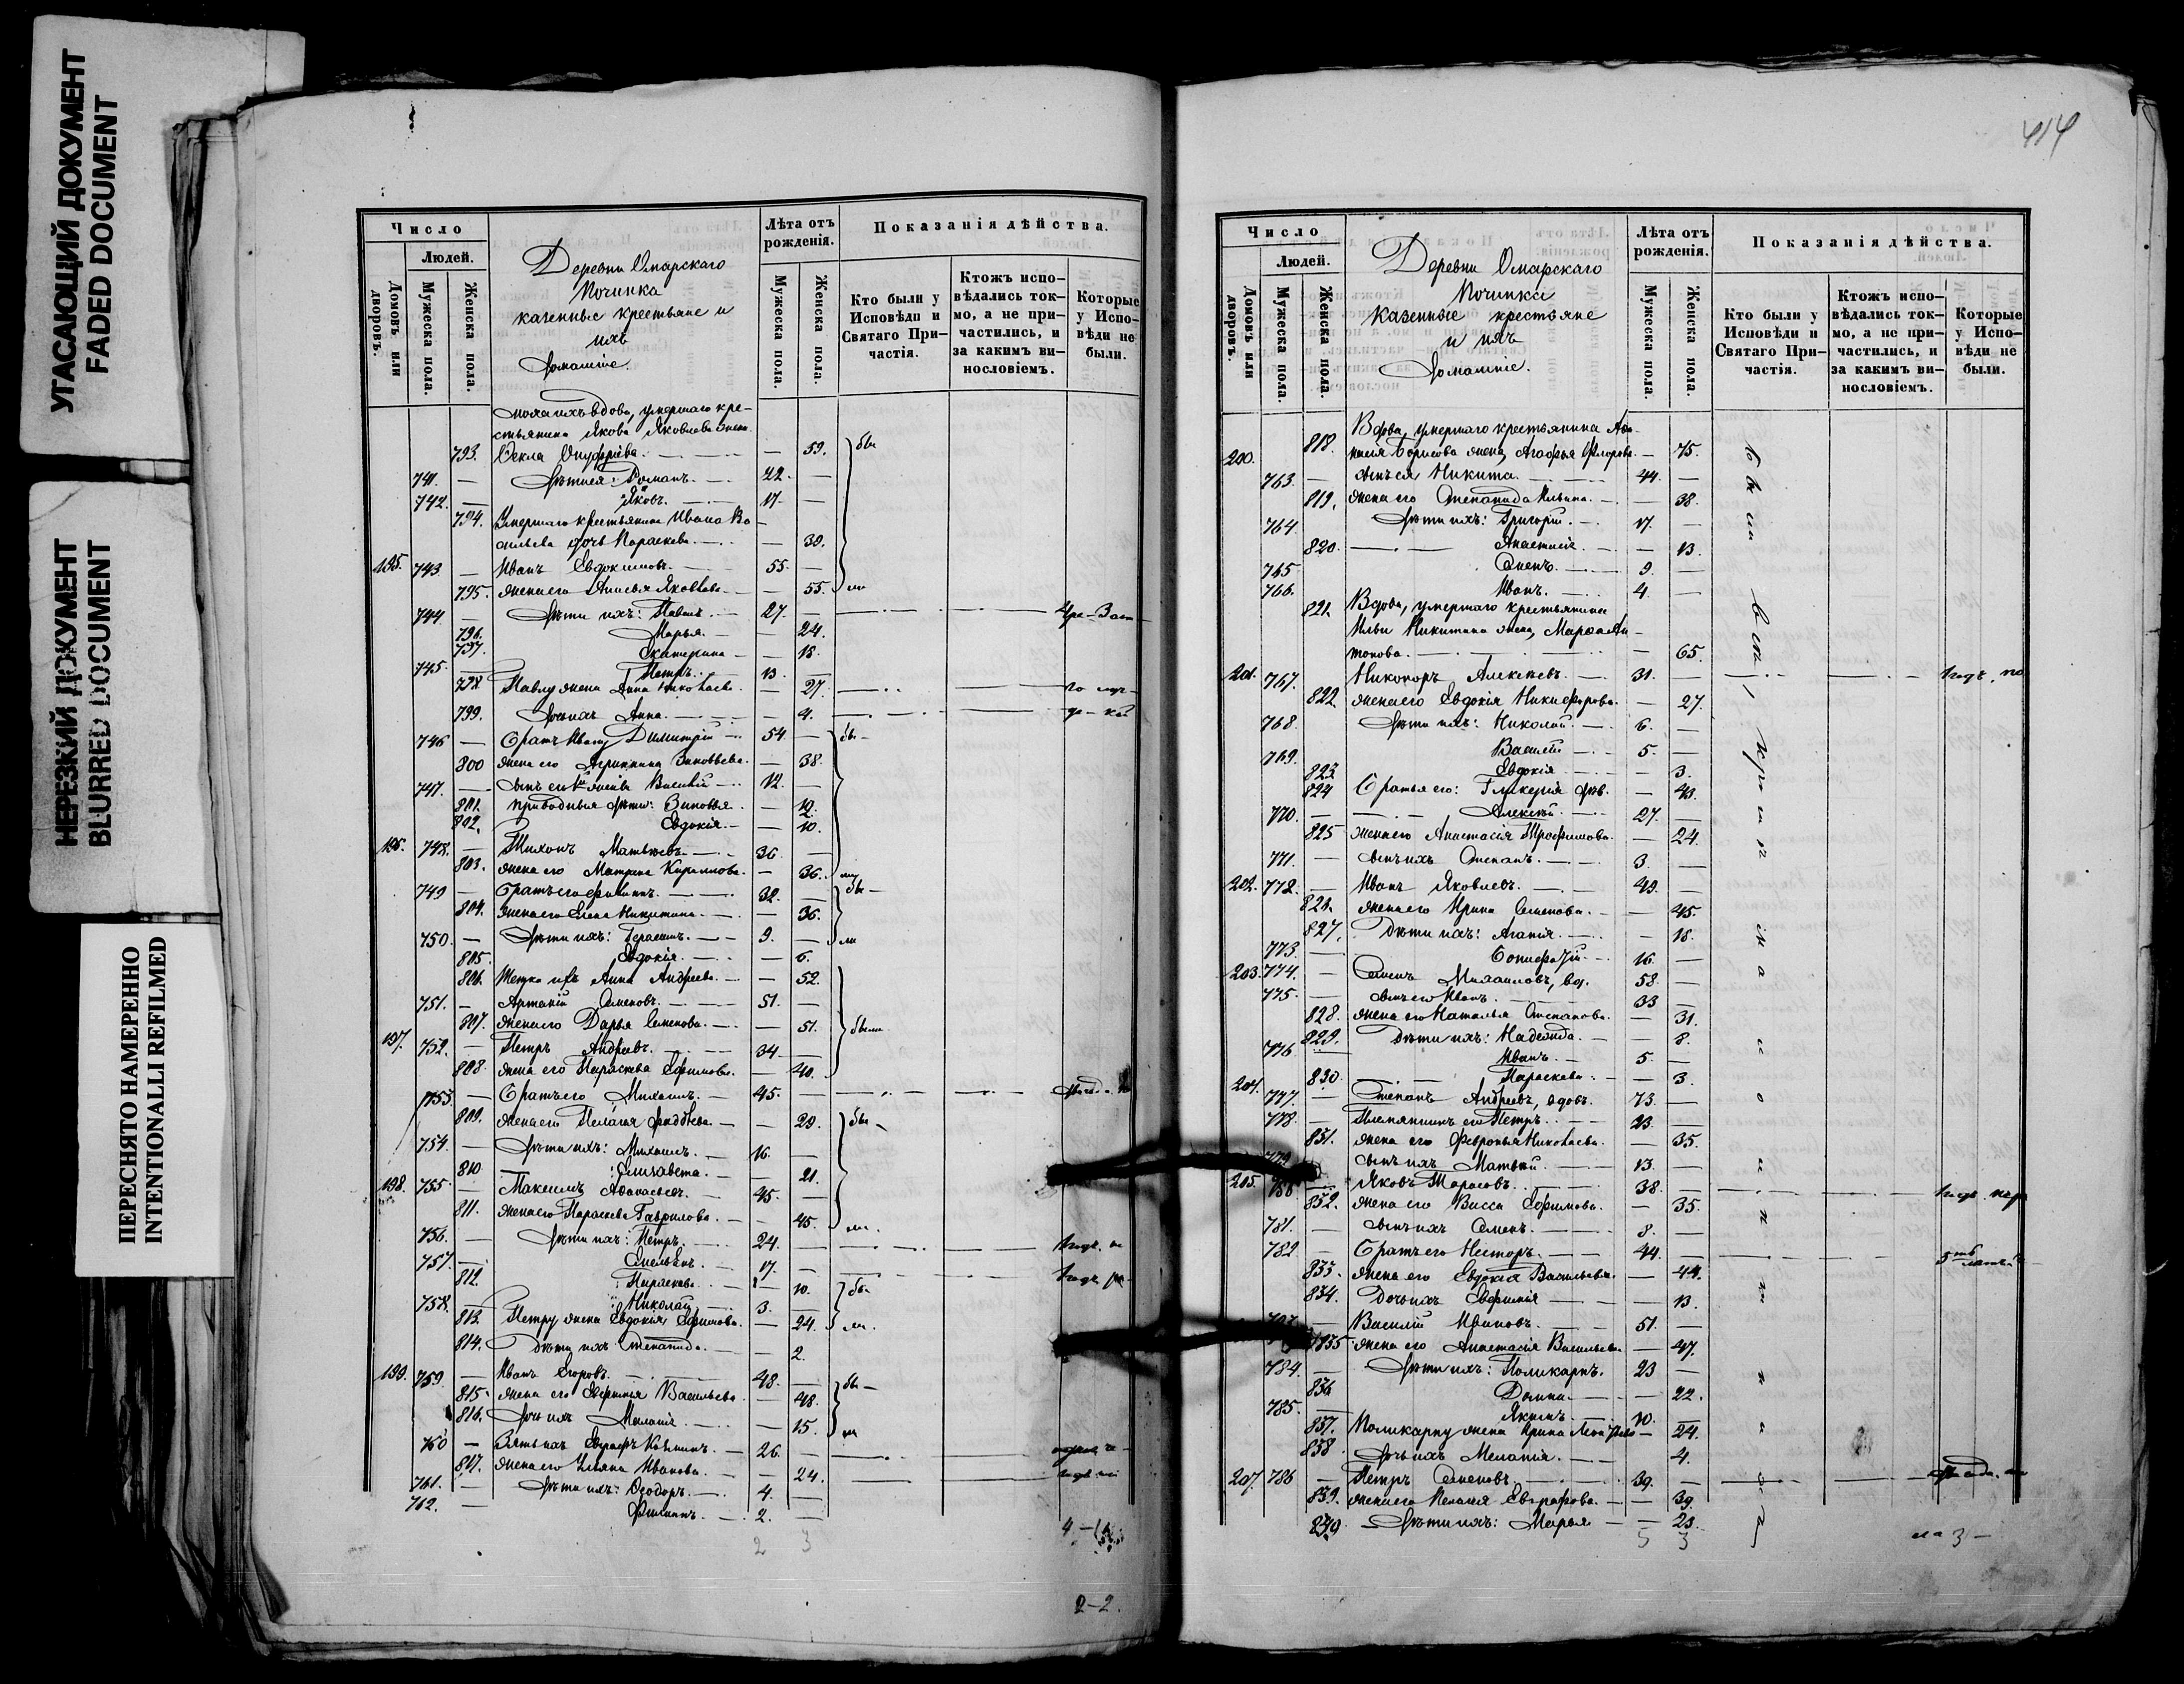 УГАСАЮЩИЙ ДОКУМЕНТ
FADED DOCUMENT
НЕРЕЗКИЙ ДОКУМЕНТ
BLURRED DOCUMENT
ПЕРЕСНЯТО НАМЕРЕННО
INTENTIONALLI REFILMED
Число
Людей.
Домовъ или дворовъ.
Мужеска пола.
Женска пола.
Деревни Омарскаго
Починка
казенные крестьяне и
ихъ
домашніе.
Лѣта отъ рожденія.
Мужеска пола.
Женска пола.
Показанія дѣйства.
Кто были у Исповѣди и Святаго Причастія.
Ктожъ исповѣдались токмо, а не причастились, и за какимъ винословіемъ.
Которые у Исповѣди не были.
вдова, умершаго кре-
стьянина Якова Яковлева жена
793. Ѳекла Онуфріева. — 59. бы
741. — Дѣти ея: Романъ. 22. —
742. — Яковъ. 17. —
794. Умершаго крестьянина Ивана Ва-
сильева дочь Параскева. — 39.
195. 743. — Иванъ Евдокимовъ. 55. —
795. жена его Анисья Яковлева. — 55. ли
744. — Дѣти ихъ: Павелъ. 27. —
796. Марья. — 24.
797. Екатерина — 18.
745. — Петръ. 13. —
798. Павлу жена Анна Николаева. — 27.
799. Дочь ихъ Анна. — 4.
746 — Братъ Ивану Димитрій 54. — бы
800 жена его Агрипина Зиновьева. — 38.
747. — Василій 12. —
801. приводныя дѣти: Зиновья. — 12.
802. Евдокія. — 10.
196. 748. — Тихонъ Матвѣевъ. 36. —
803. жена его Матрена Кириллова. — 36.
749 — Братъ его Филиппъ. 32. — бы
804. жена его Елена Никитина. — 36.
750. — Дѣти ихъ: Герасимъ. 9. — ли
805. Евдокія. — 6.
806. Тетка ихъ Анна Андреева. — 52.
751. — Артемій Семеновъ. 51. —
807. жена его Дарья Семенова. — 51. были
197. 752. — Петръ Андреевъ. 34. —
808. жена его Параскева Ефимова. — 40.
753. — Братъ его Михаилъ. 45. —
809. жена его Пелагія Фаддѣева. — 29. бы
754. — Дѣти ихъ: Михаилъ. 16. —
810 Елизавета. — 21.
198. 755. — Максимъ Аѳанасьевъ. 45. —
811. жена его Параскева Гаврилова. — 45. ли.
756. — Дѣти ихъ: Петръ. 24. —
757. — Емельянъ. 17. —
812. Параскева. — 10. бы
758. — Николай 3. —
813. Петру жена Евдокія Ефимова. — 24. ли.
814. Дѣти ихъ Степанида. — 2.
199. 759 — Иванъ Егоровъ. 48. — бы
815. жена его Ефимья Васильева. — 48.
816. Дочь ихъ Меланія. — 15. ли
760 — Зять ихъ 26. —
817. жена его Ульяна Иванова. — 24.
761. — Дѣти ихъ: Ѳеодоръ. 4. —
762. — Филиппъ. 2. —
2 3
2-2.
414
Число
Людей.
Домовъ или дворовъ.
Мужеска пола.
Женска пола.
Деревни Омарскаго
Починка
Казенные крестьяне
и ихъ
домашніе.
Лѣта отъ рожденія.
Мужеска пола
Женска пола.
Показанія дѣйства.
Кто были у Исповѣди и Святаго Причастія.
Ктожъ исповѣдались токмо, а не причастились, и за какимъ винословіемъ.
Которые у Исповѣди не были.
Вдова, умершаго крестьянина
200. 818. Борисова жена, Агафья — 75.
763. — сынъ ея Никита. 44. —
819. жена его Степанида Ильина. — 38.
764 Дѣти ихъ: Григорій. 17. —
820. Анастасія. — 13.
765 Семенъ. 9. —
766. Иванъ. 4. —
821. Вдова, умершаго крестьянина
Ильи Никитина жена, Марѳа Ан-
тонова. — 65.
201. 767. Никоноръ Алексѣевъ. 31. —
822. жена его Евдокія Никифорова. — 27.
768. Дѣти ихъ: Николай. 6. —
769. Василій 5. —
823. Евдокія — 3.
824 Братья его: Гликерія дѣв. — 43.
770. — Алексѣй. 27. —
825 жена его Анастасія Трофимова. — 24.
771. — сынъ ихъ Степанъ. 3. —
202. 772. — Иванъ Яковлевъ. 49. —
826. жена его Ирина Семенова. — 45.
827. Дѣти ихъ: Агапія. — 18.
773. — Бонифатій. 16. —
203. 774. — Семенъ Михаиловъ, вд. 58. —
775. — сынъ его Иванъ. 33 —
828. жена его Наталья Степанова. — 31.
829. Дѣти ихъ: Надежда. — 8.
776 — Иванъ. 5. —
830 Параскева. — 3.
204. 777. — Степанъ Андреевъ, вдовъ. 73. —
778. — Племянникъ его Петръ. 23. —
831. жена его Февронья Николаева. — 35.
779. сынъ ихъ Матвѣй. 13. —
205. 780 — Яковъ Тарасовъ. 38. —
832. жена его Васса Ефимова. — 35.
781. — сынъ ихъ Семенъ. 8. —
782. — Братъ его Несторъ. 44. —
833. жена его Евдокія Васильева. — 44.
834. Дочь ихъ Евфимія — 13.
— Василій Ивановъ. 51. —
835 жена его Анастасія Васильева — 47.
784. — Дѣти ихъ: Поликарпъ. 23 —
836 Домна. — 22.
785. — Якимъ. 10. —
837. Поликарпу жена Ирина — 24.
838. Дочь ихъ Меланія. — 4.
207. 786 — Петръ Семеновъ. 39. —
839. жена его Пелагія Евграфова. — 39.
840 Дѣти ихъ: Марья — 23.
5 3